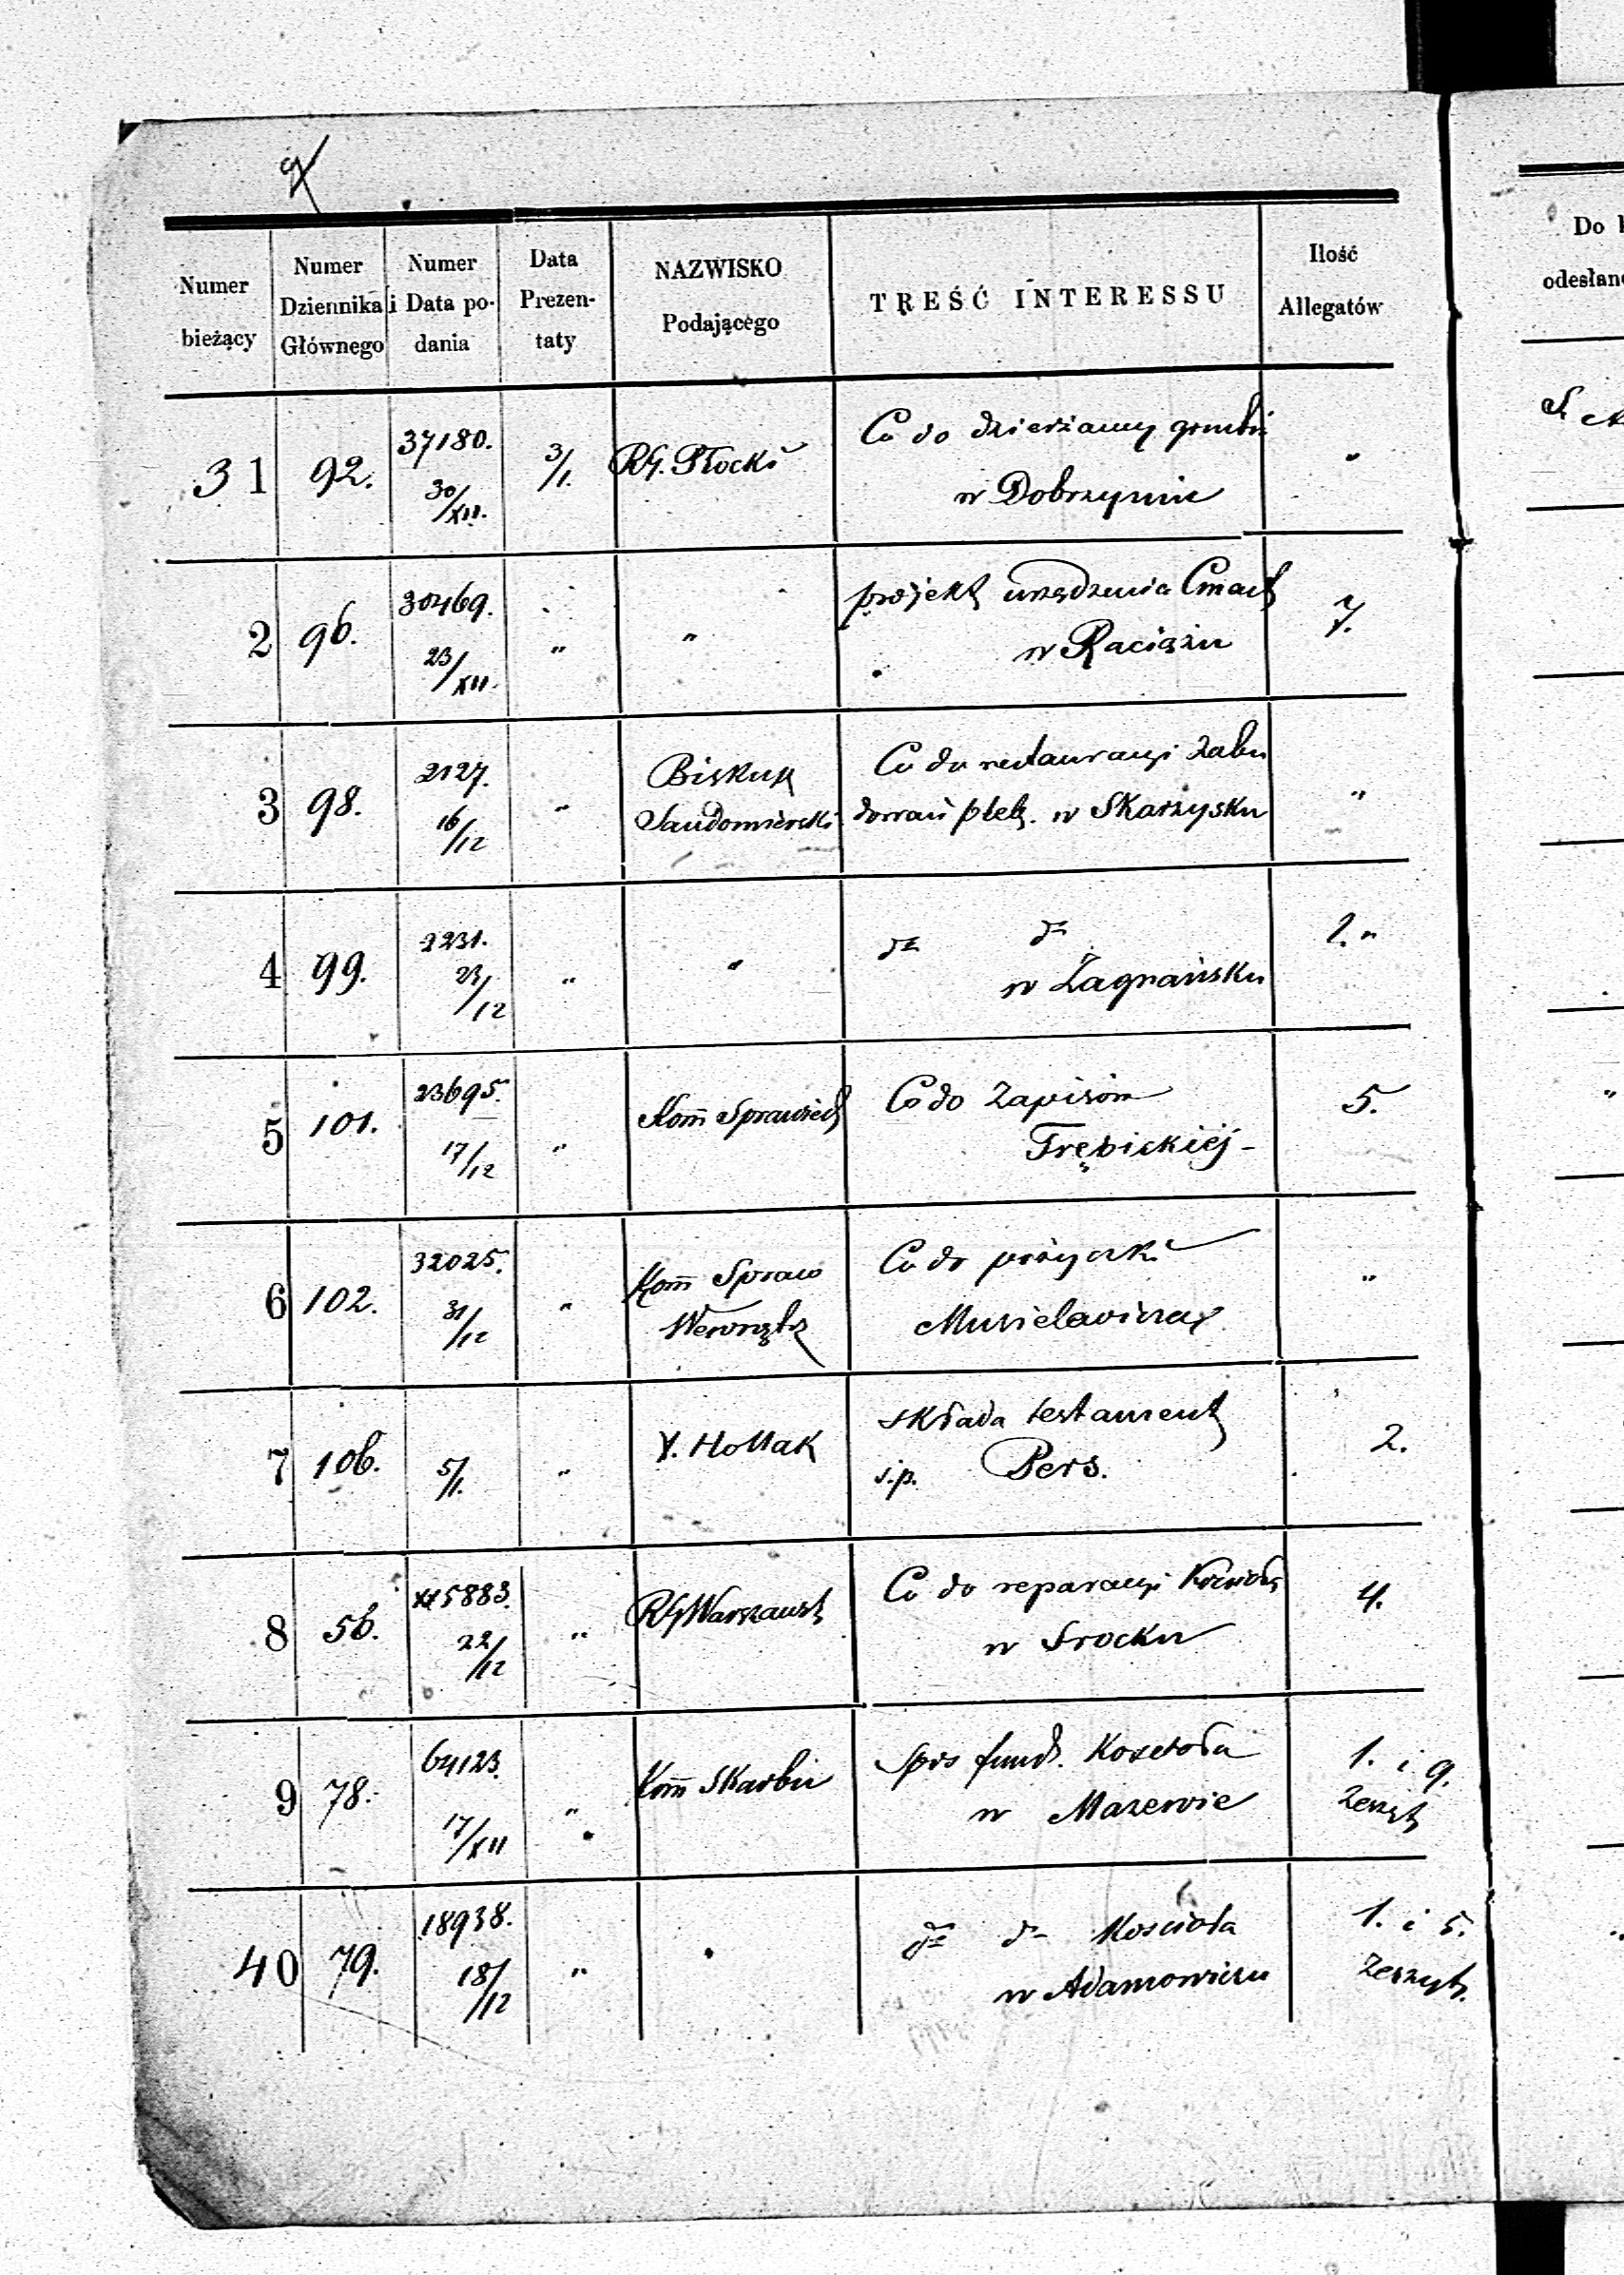 9
Numer bieżący
Numer Dziennika Głównego
Numer i Data podania
Data Prezentaty
NAZWISKO Podającego
TREŚĆ INTERESSU
Ilość Allegatów
Do
odesłan
31 92. 37180. 30/XII. 3/1. RG. Płocki Co do dzierżawy gruntu "
w Dobrzyniu
2 96. 30469. 23/XII. " " projekt urządzenia Cmen 7.
w Raciążu
3 98. 2127. 16/12 " Biskup Co do restauracyi zabu "
Sandomierski dowań pleb. w Skarzysku
4 99. 2231. 23/12 " " do do 1."
w Zagnańsku
5 101. 23695. 17/12 " Kom Sprawied Co do Zapisów 5.
Trębickiéj -
6 102. 32025. 31/12 " Kom Spraw Co do pożyczki "
Wewnętrz Musielewicza
7 106. 5/1. " Y. Hollak składa testament 2.
ś.p. Pers.
8 56. 115883. 22/12 " RG Warszaws Co do reparacyi Kościoła 4.
w Srocku
9 78. 64123. 17/XII " Kom Skarbu Spis fund. Kościoła 1. i 9.
w Mazewie Zeszyt
40 79. 18938. 18/12 " " do do Kościoła 1. i 5.
w Adamowicza Zeszyt.